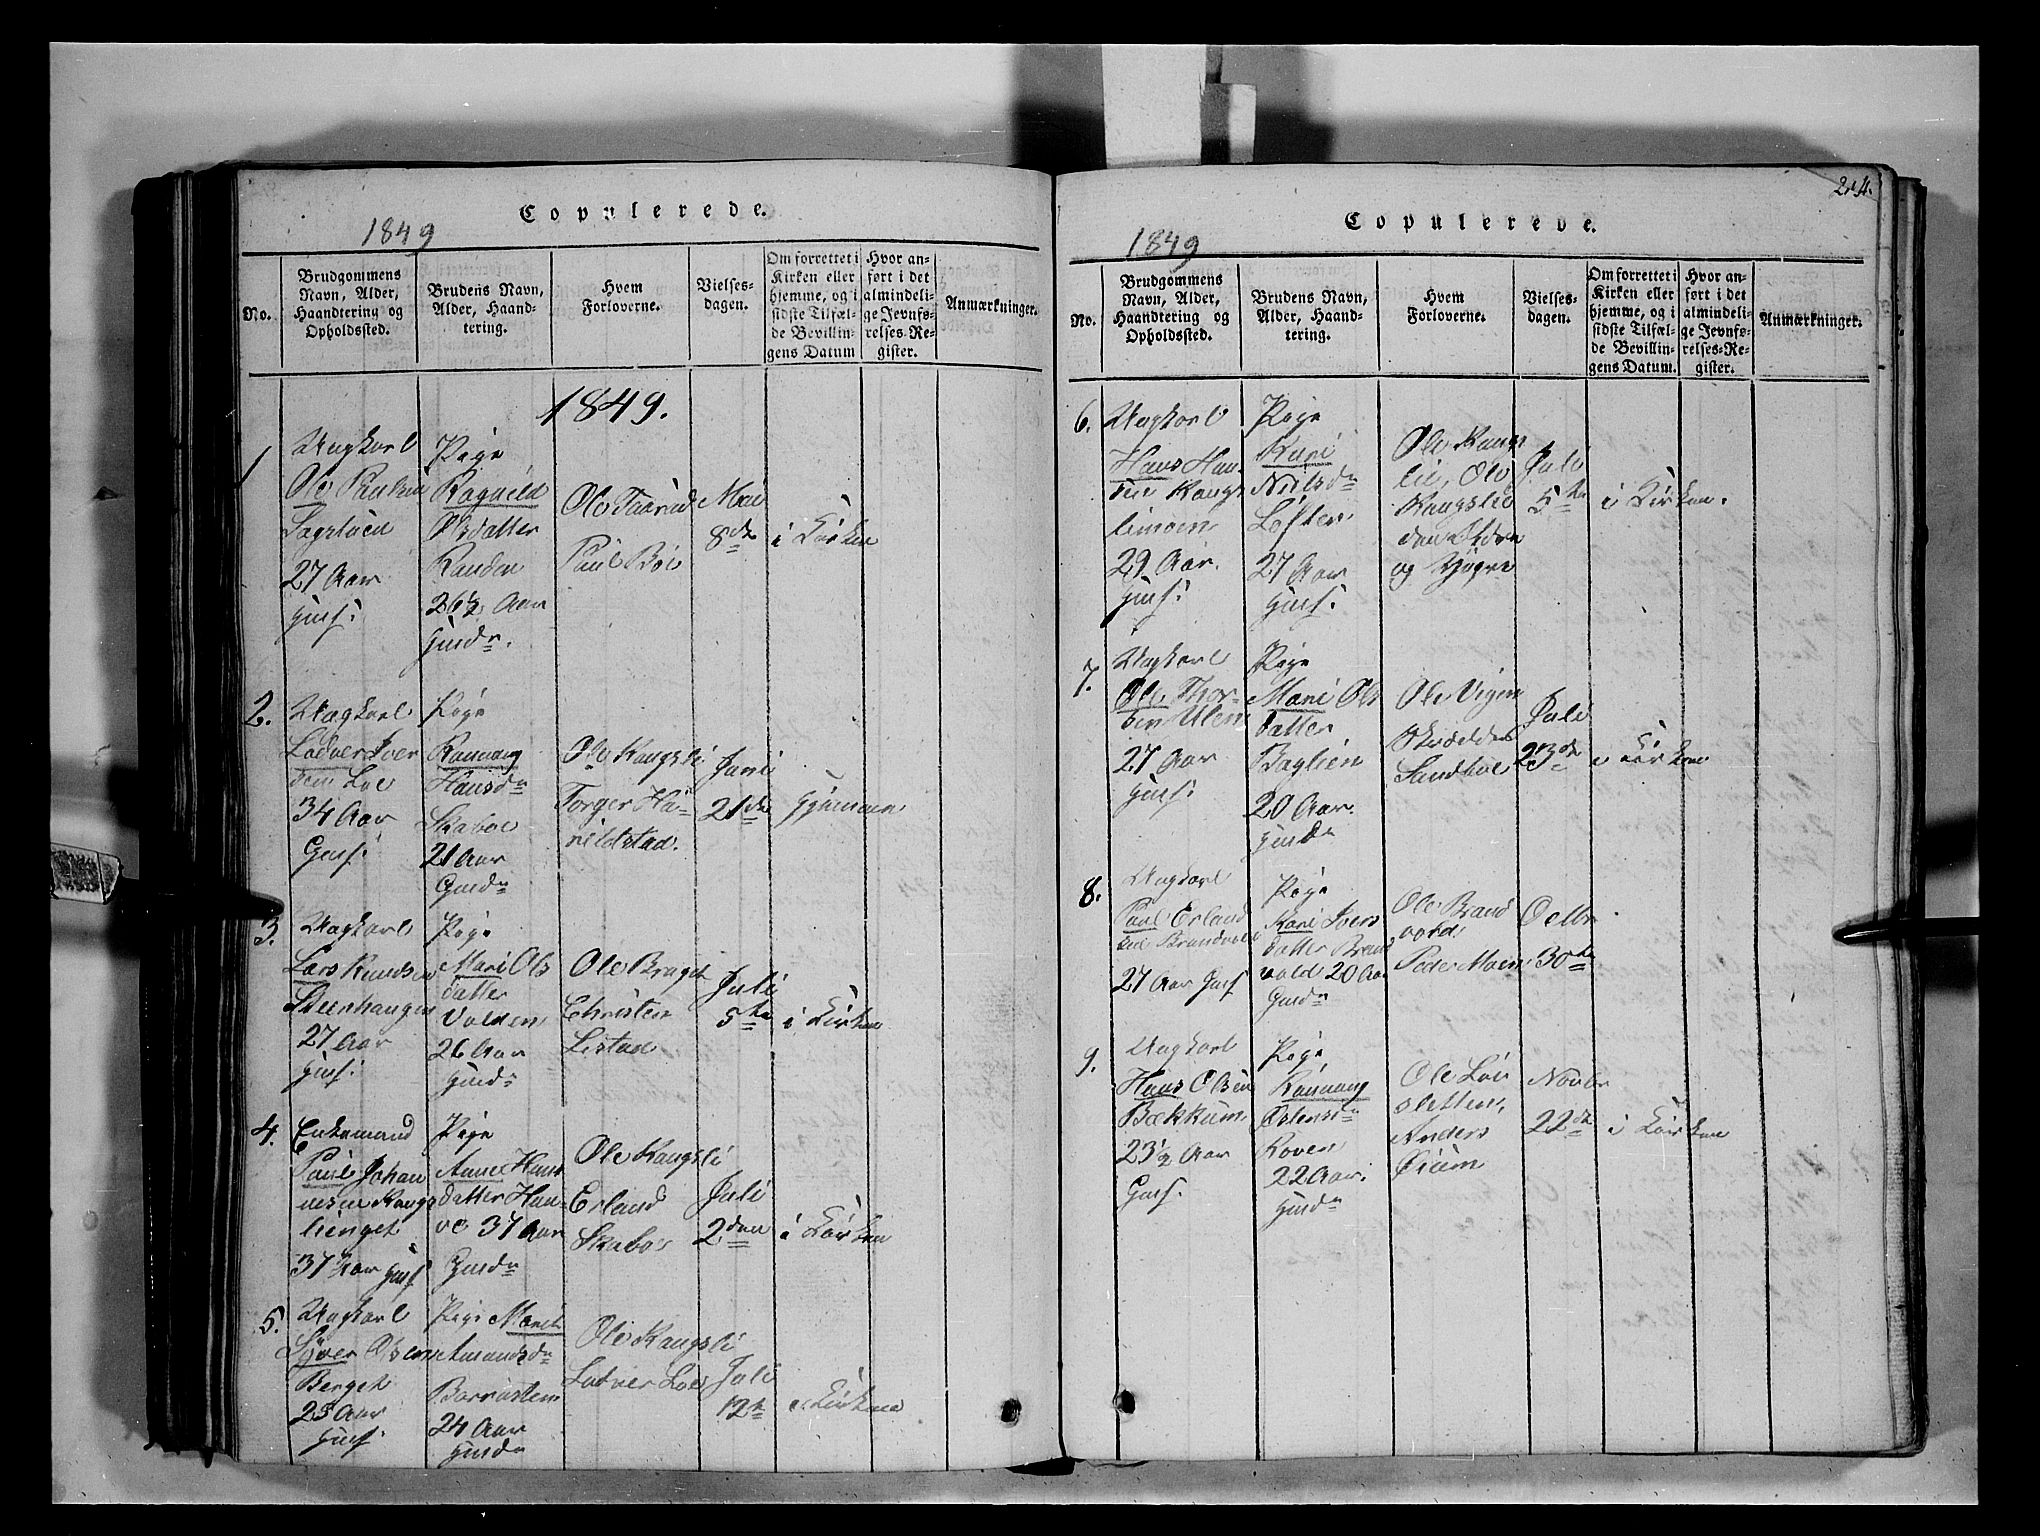 Copulerede.
1849
No.
Brudgommens
Navn, Alder,
Haandtering og
Opholdssted.
Brudens Navn,
Alder, Haand-
tering.
Hvem
Forloverne.
Vielses-
dagen.
Om forrettet i
Kirken eller
hjemme, og i
sidste Tilfæl-
de Bevillin-
gens Datum
Hvor an-
ført i det
almindeli-
ge Jevnfø-
relses-Re-
gister.
Anmærkninger.
1849.
1
Ungkarl
Ole Paulsen
27 Aar
Pige
Ragnild
Olsdatter
Randen
26½ Aar
Ole Taarud
Paul Böe
Mai
8de
i Kirken
2.
Ungkarl
Ladver Iver
sen Loe
34 Aar
Pige
Rannang
Hansdr
Skaboe
21 Aar
Ole Kangsli
Torger Ha-
rildstad.
Juni
21de
Hjemmen
3.
Ungkarl
Lars Knudsen
Steenhaugen
27 Aar
Pige
Mari Ols
datter
Volden
26 Aar
Ole Braget
Christen
Listad
Juli
5te
i Kirken
4.
Enkemand
Paul Johan
nesen Kangs
lienget
37 Aar
Pige
Anne Hans
datter Han-
ve 37 Aar
Ole Kangsli
Erland
Skaboe
Juli
2den
i Kirken
5.
Ungkarl
Syver Olsen
Berget
25 Aar
Pige Marit
Amundsdr
24 Aar
Ole Kangsli
Ladver Loe
Juli
12te
i Kirken
214.
Copulerede.
1849
No.
Brudgommens
Navn, Alder,
Haandtering og
Opholdssted.
Brudens Navn,
Alder, Haand-
tering.
Hvem
Forloverne.
Vielses-
dagen.
Om forrettet i
Kirken eller
hjemme, og i
sidste Tilfæl-
de Bevillin-
gens Datum.
Hvor an-
ført i det
almindeli-
ge Jevnfø-
relses-Re-
gister.
Anmærkninger.
6.
Ungkarl
Hans Han-
sen Kangs
limoen
29 Aar.
Pige
Kari
Nielsdr
Loften
27 Aar
Ole Kangs
lie, Ole
Kangslie
den Eldre
og Yngre
Juli
5te
i Kirken.
7.
Ungkarl
Ole Thor-
sen Ulen
27 Aar
Pige
Mari Ols
datter
Baglien
20 Aar.
Ole Vigen
Skrædder
Sandboe
Juli
23de
i Kirken
8.
Ungkarl
Paul Erland
sen Brandvold
27 Aar
Pige
Kari Ivers
datter Brand
vold 20 Aar
Ole Brand
vold
Peder Moen
Octbr
30te
9.
Ungkarl
Hans Olsen
Bækkum
23½ Aar
Pige
Rannang
Østensdr
Roven
22 Aar.
Ole Löi
sletten,
Anders
Öium
Novbr
22de
i Kirken